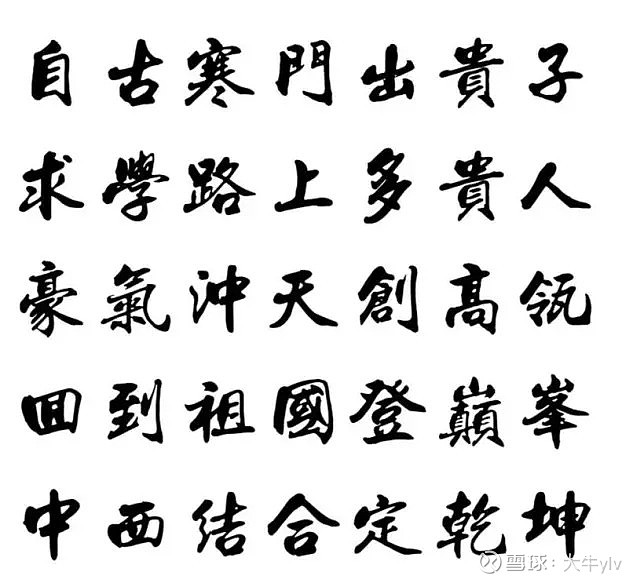 自古寒門出貴子
求學路上多貴人
豪氣沖天創高瓴
回到祖國登巔峯
中西結合定乾坤
雪球：大牛ylv